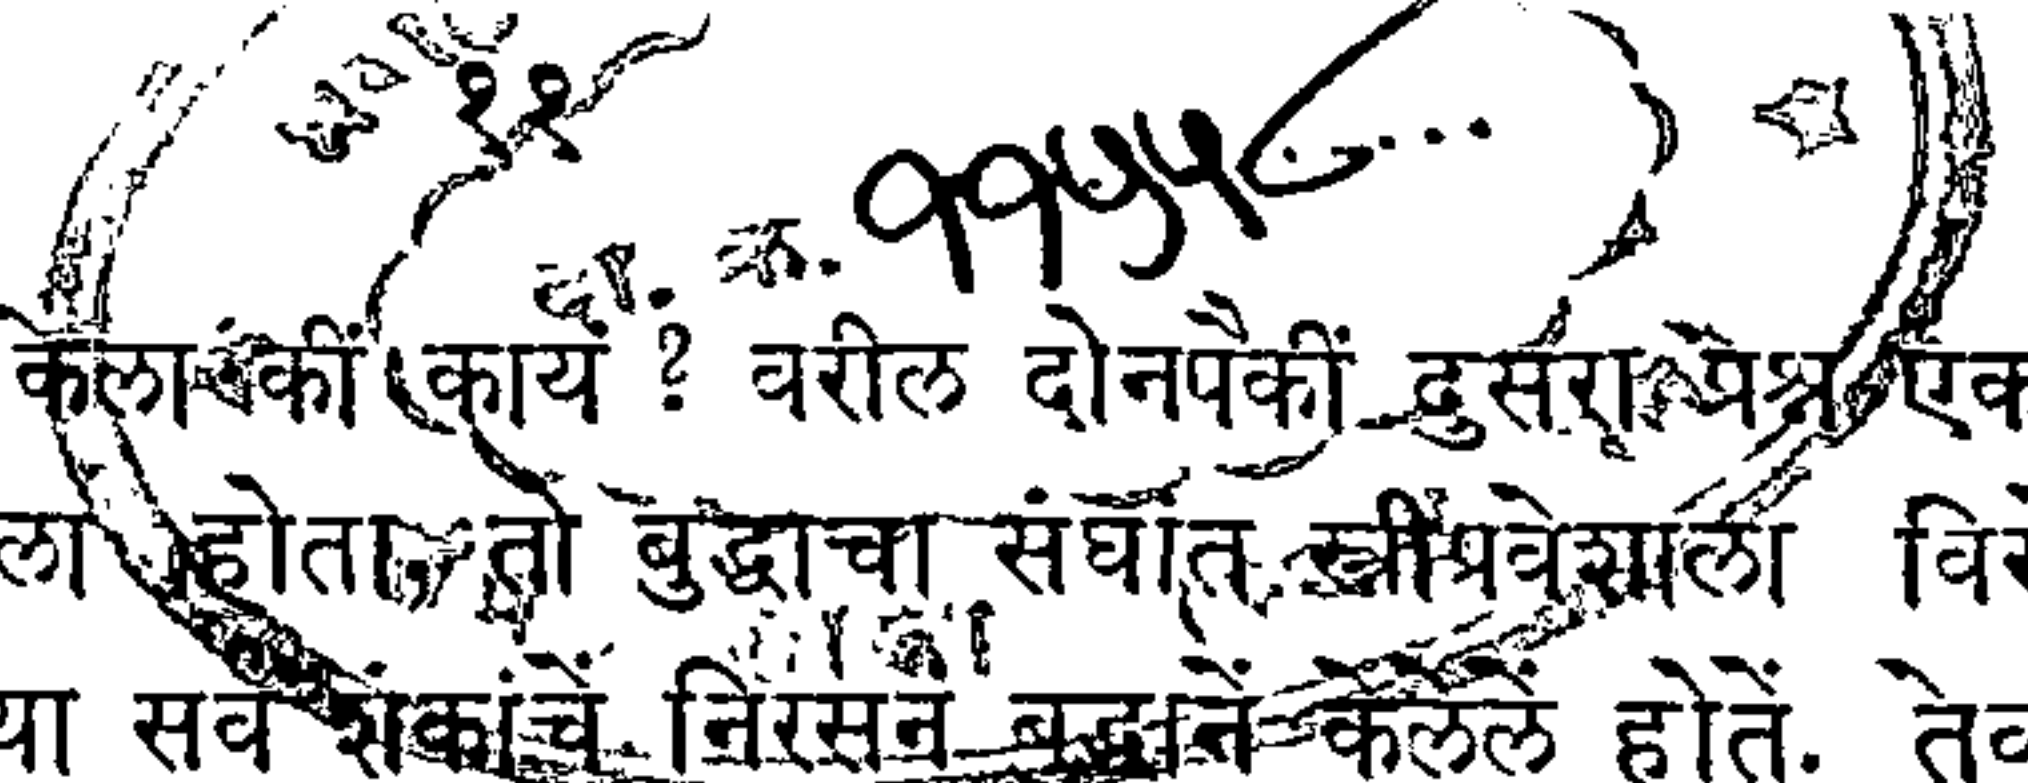 ११
दा. क्र. ११५५
केला कीं काय ? वरील दोनपैकीं दुसरा प्रश्न एक
ला होता तो बुद्धाचा संघांत स्त्रीप्रवेशाला
या सर्व शंकांचें निरसन बुद्धानें केलेलें होतें.